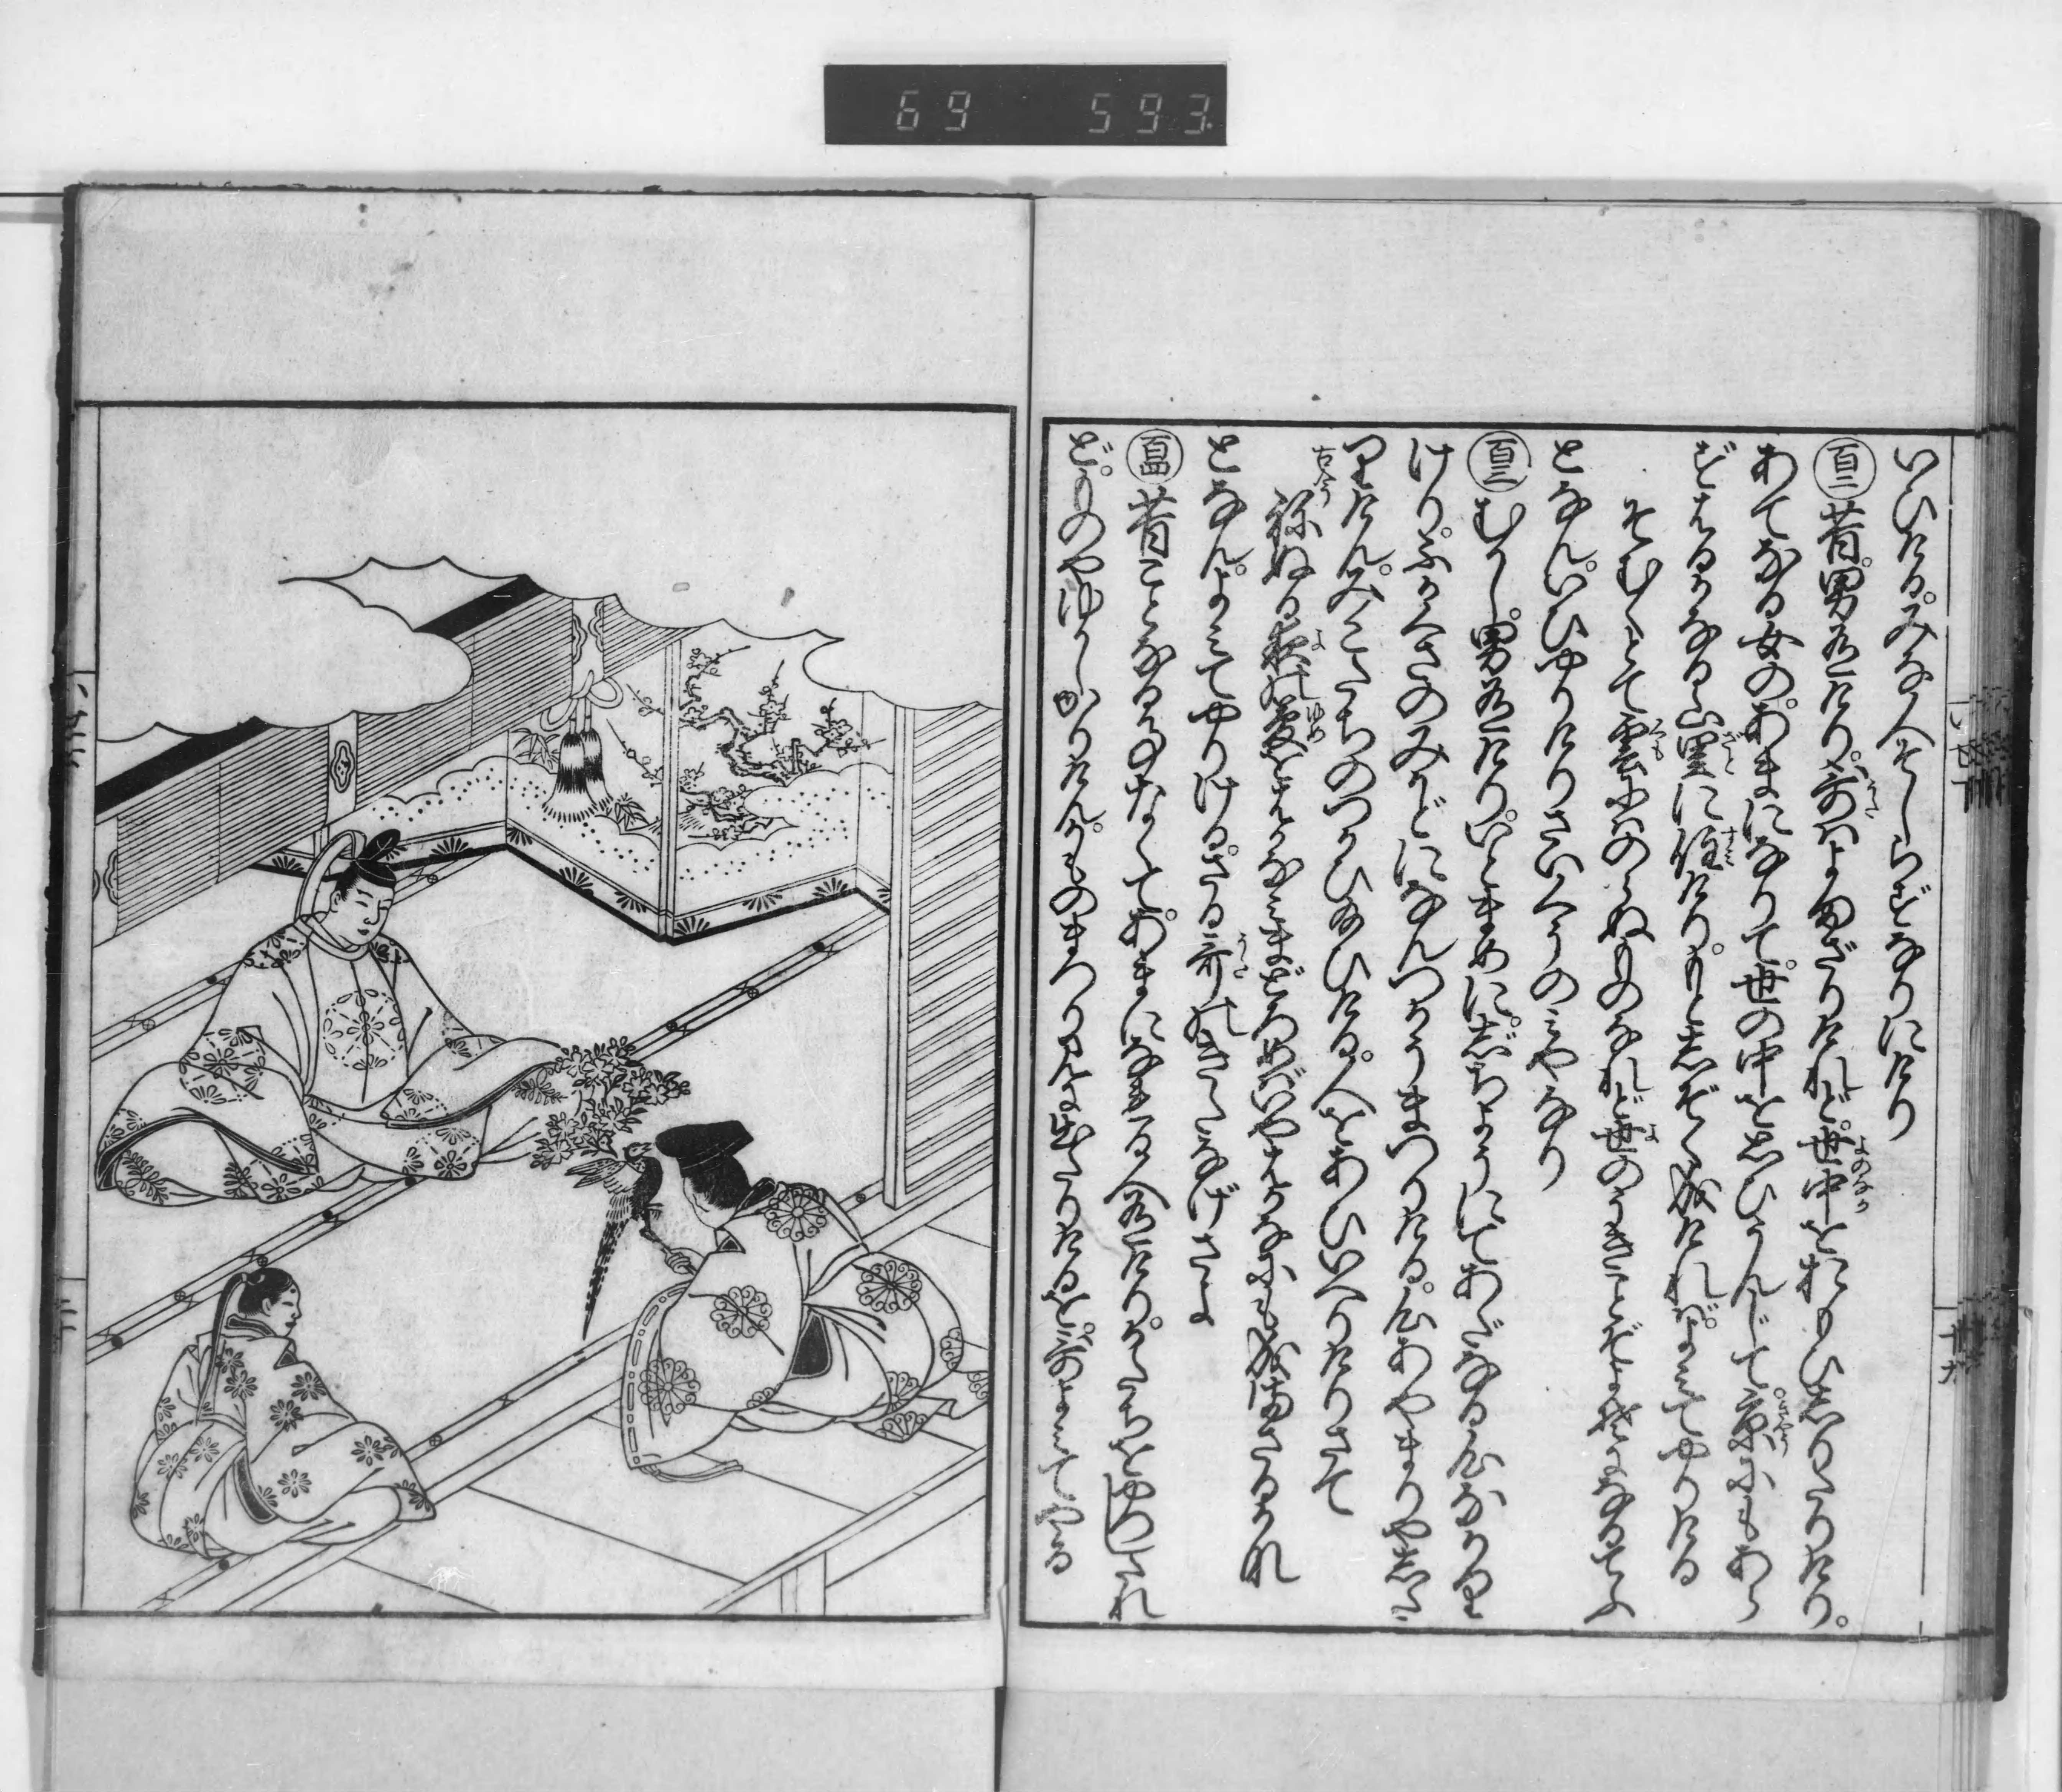 69 593
いひける。みな人そしらずなりにけり
百二 昔。男有けり。哥はよまざりけれど。世中を思ひしりたりけり。
あてなる女の。あまになりて。世の中を思ひうんじて。京にもあら
ずはるかなる山里に住けり。もとしぞく成ければ。よみてやりける
そむくとて雲にはのらぬものなれど世のうきことぞよそになるてふ
となん。いひやりけりさいくうのみやなり
百三 むかし。男有けり。いとまめに。じちようにてあだなる心なかり
けり。ふかくさのみかどになんつかうまつりける。心あやまりやした
りけん。みこたちのつかひ給ひける。人をあひいへりけりさて
古今 ねぬる夜の夢をはかなみまどろめばいやはかなにも成まさるかな
となん。よみてやりける。さる哥のきたなげさよ
百四 昔ことなる事なくて。あまになれる人有けり。かたちをやつしたれ
ど。ものやゆかしかりけん。かものまつり見に出たりけるを。男哥よみてやる
いせ下
十九